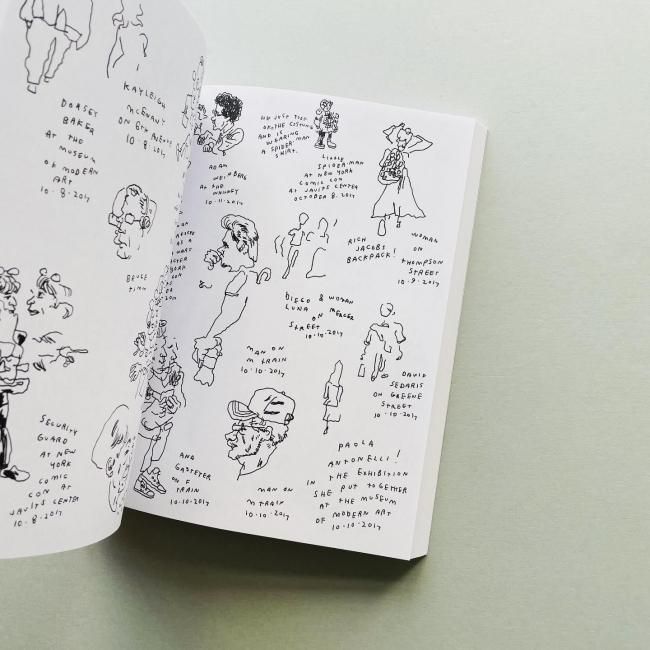 KAYLEIGH
MCENANY
ON 6TH AVENUE
10.8.2017
DORSEY
BAKER
AT THE
MUSEUM
OF MODERN
ART
10.8.2017
BRUCE
TIMM
SECURITY
GUARD
AT NEW
YORK
COMIC
CON AT
JAVITS CENTER
10.8.2017
ADAM
WEINBERG
AT THE
WHITNEY
10.11.2017
HE JUST TOOK
OFF THE COSTUME
AND IS
WEARING
A SPIDER-MAN
SHIRT.
LITTLE
SPIDER-MAN
AT NEW YORK
COMIC CON
AT JAVITS CENTER
OCTOBER 8.2017
RICH
JACOBS'
BACKPACK!
WOMAN
ON
THOMPSON
STREET
10.9.2017
DIEGO & WOMAN
LUNA ON MERCER
STREET
10.10.2017
MAN ON
M TRAIN
10.10.2017
DAVID
SEDARIS
ON GREENE
STREET
10.10.2017
ANA
GASTEYER
ON F
TRAIN
10.10.2017
MAN ON
M TRAIN
10.10.2017
PAOLA
ANTONELLI!
IN THE EXHIBITION
SHE PUT TOGETHER
AT THE MUSEUM
OF MODERN ART
10.10.2017